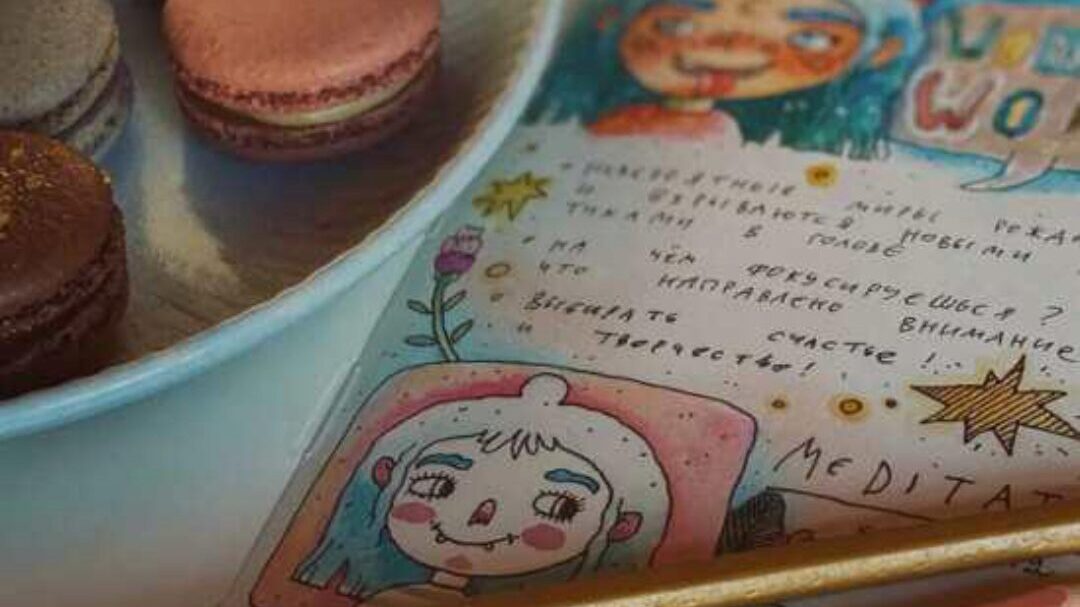 WO
• НЕВЕРОЯТНЫЕ МИРЫ
И ВЗРЫВАЮТСЯ НОВЫМИ
ТИКАМИ В ГОЛОВЕ
• НА ЧЁМ ФОКУСИРУЕШЬСЯ?
ЧТО НАПРАВЛЕНО ВНИМАНИЕ
• ВЫБИРАТЬ СЧАСТЬЕ!
И ТВОРЧЕСТВО!
MEDITAT